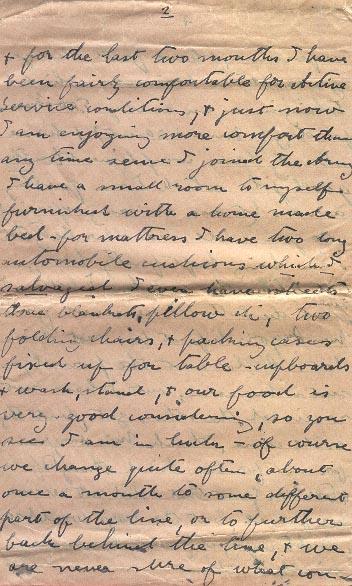 2
& for the last two months I have
been fairly comfortable for Active
Service conditions, & just now
I am enjoying more comfort than
any time since I joined the Army
I have a small room to myself
furnished with a home made
bed - for mattress I have two long
automobile cushions which I
salvaged I even have sheets
blankets, pillow etc, two
folding chairs, & packing cases
fixed up for table - cupboards
& wash, stand, & our food is
very good considering, so you
see I am in luck - of course
we change quite often, about
once a month to some different
part of the line, or to further
back behind the line, & we
are never sure of what con